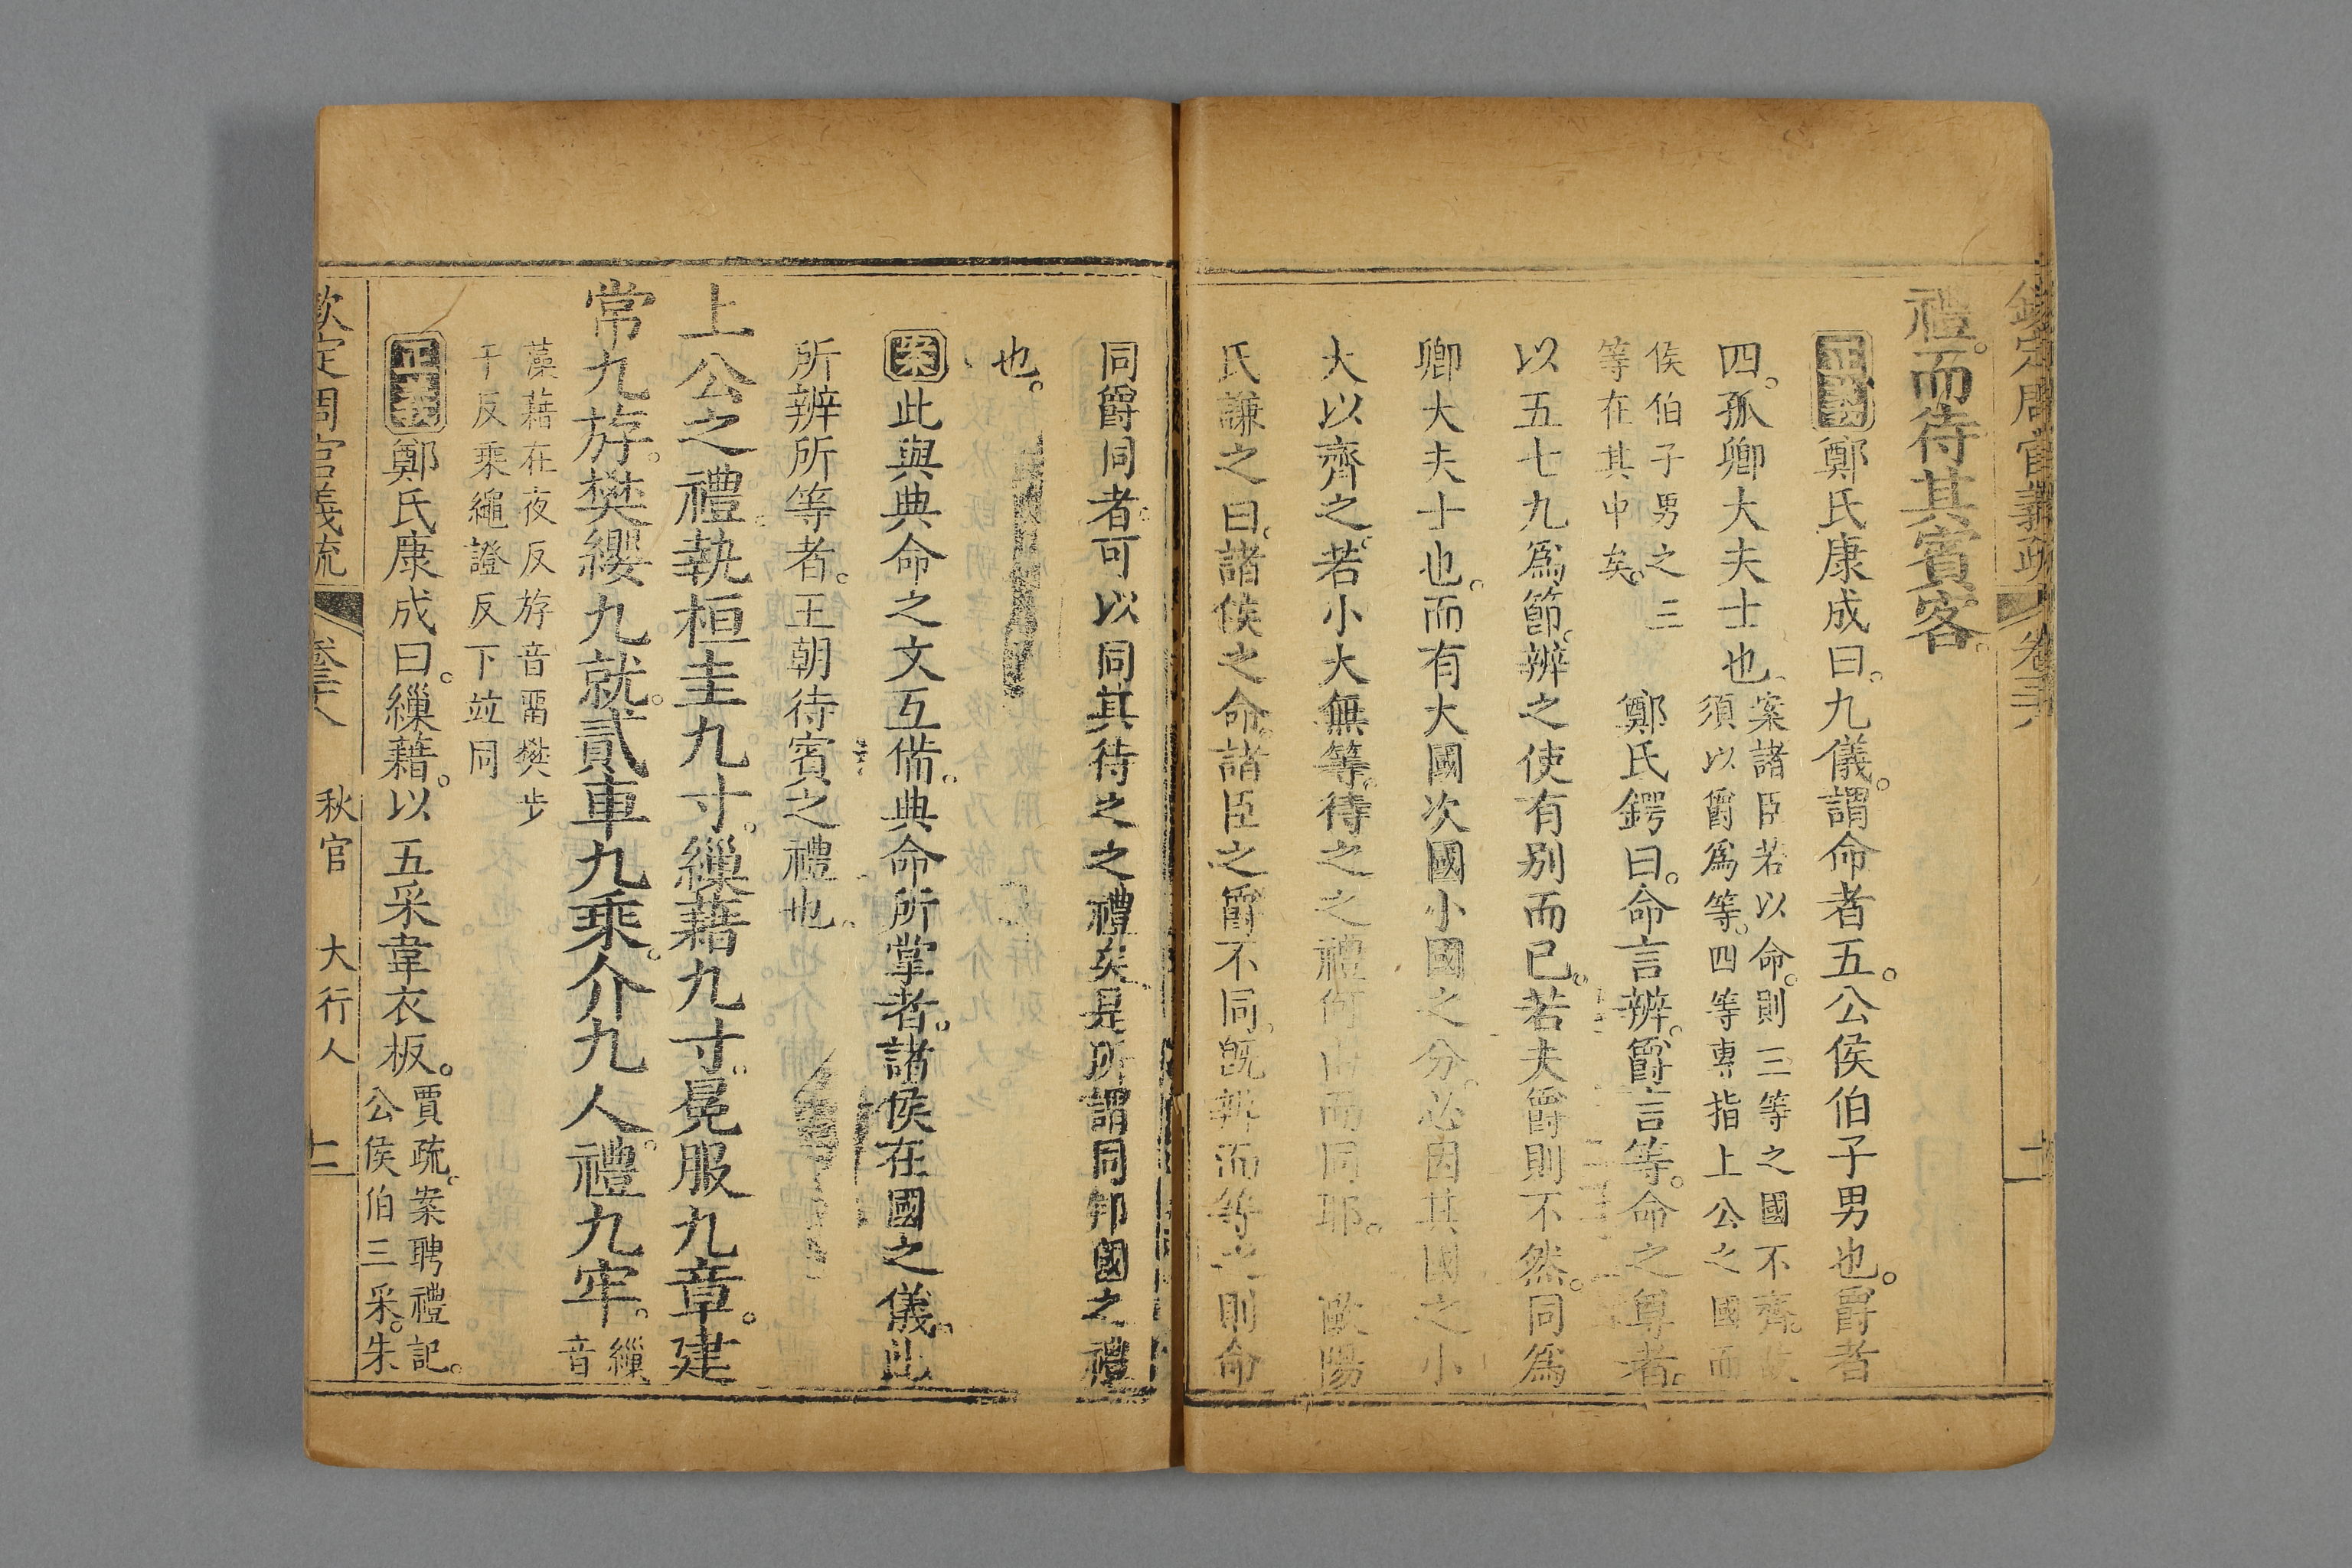 欽定周官義疏 卷三十八
禮。而待其賓客。
正義鄭氏康成曰。九儀。謂命者五。公侯伯子男也。爵者
四。孤卿大夫士也。案諸臣若以命。則三等之國不齊。故
須以爵爲等。四等專指上公之國而
侯伯子男之三
等在其中矣。
鄭氏鍔曰。命言辨。爵言等。命之尊者。
以五七九爲節。辨之使有別而已。若夫爵則不然。同爲
卿大夫士也。而有大國次國小國之分。必因其國之小
大以齊之。若小大無等。待之之禮何由而同耶。 歐陽
氏謙之曰。諸侯之命。諸臣之爵不同。旣辨而等之。則命
同爵同者。可以同其待之之禮矣。是所謂同邦國之禮
也。
案此與典命之文互備。典命所掌者。諸侯在國之儀。此
所辨所等者。王朝待賓之禮也。
上公之禮。執桓圭九寸。繅藉九寸。冕服九章。建
常九斿。樊纓九就。貳車九乘。介九人。禮九牢。繅
音
藻藉在夜反斿音畱樊步
干反乘繩證反下竝同
正義鄭氏康成曰。繅藉。以五采韋衣板。賈疏。案聘禮記。
公侯伯三采。朱
欽定周官義疏 卷三十八 秋官 大行人 十二